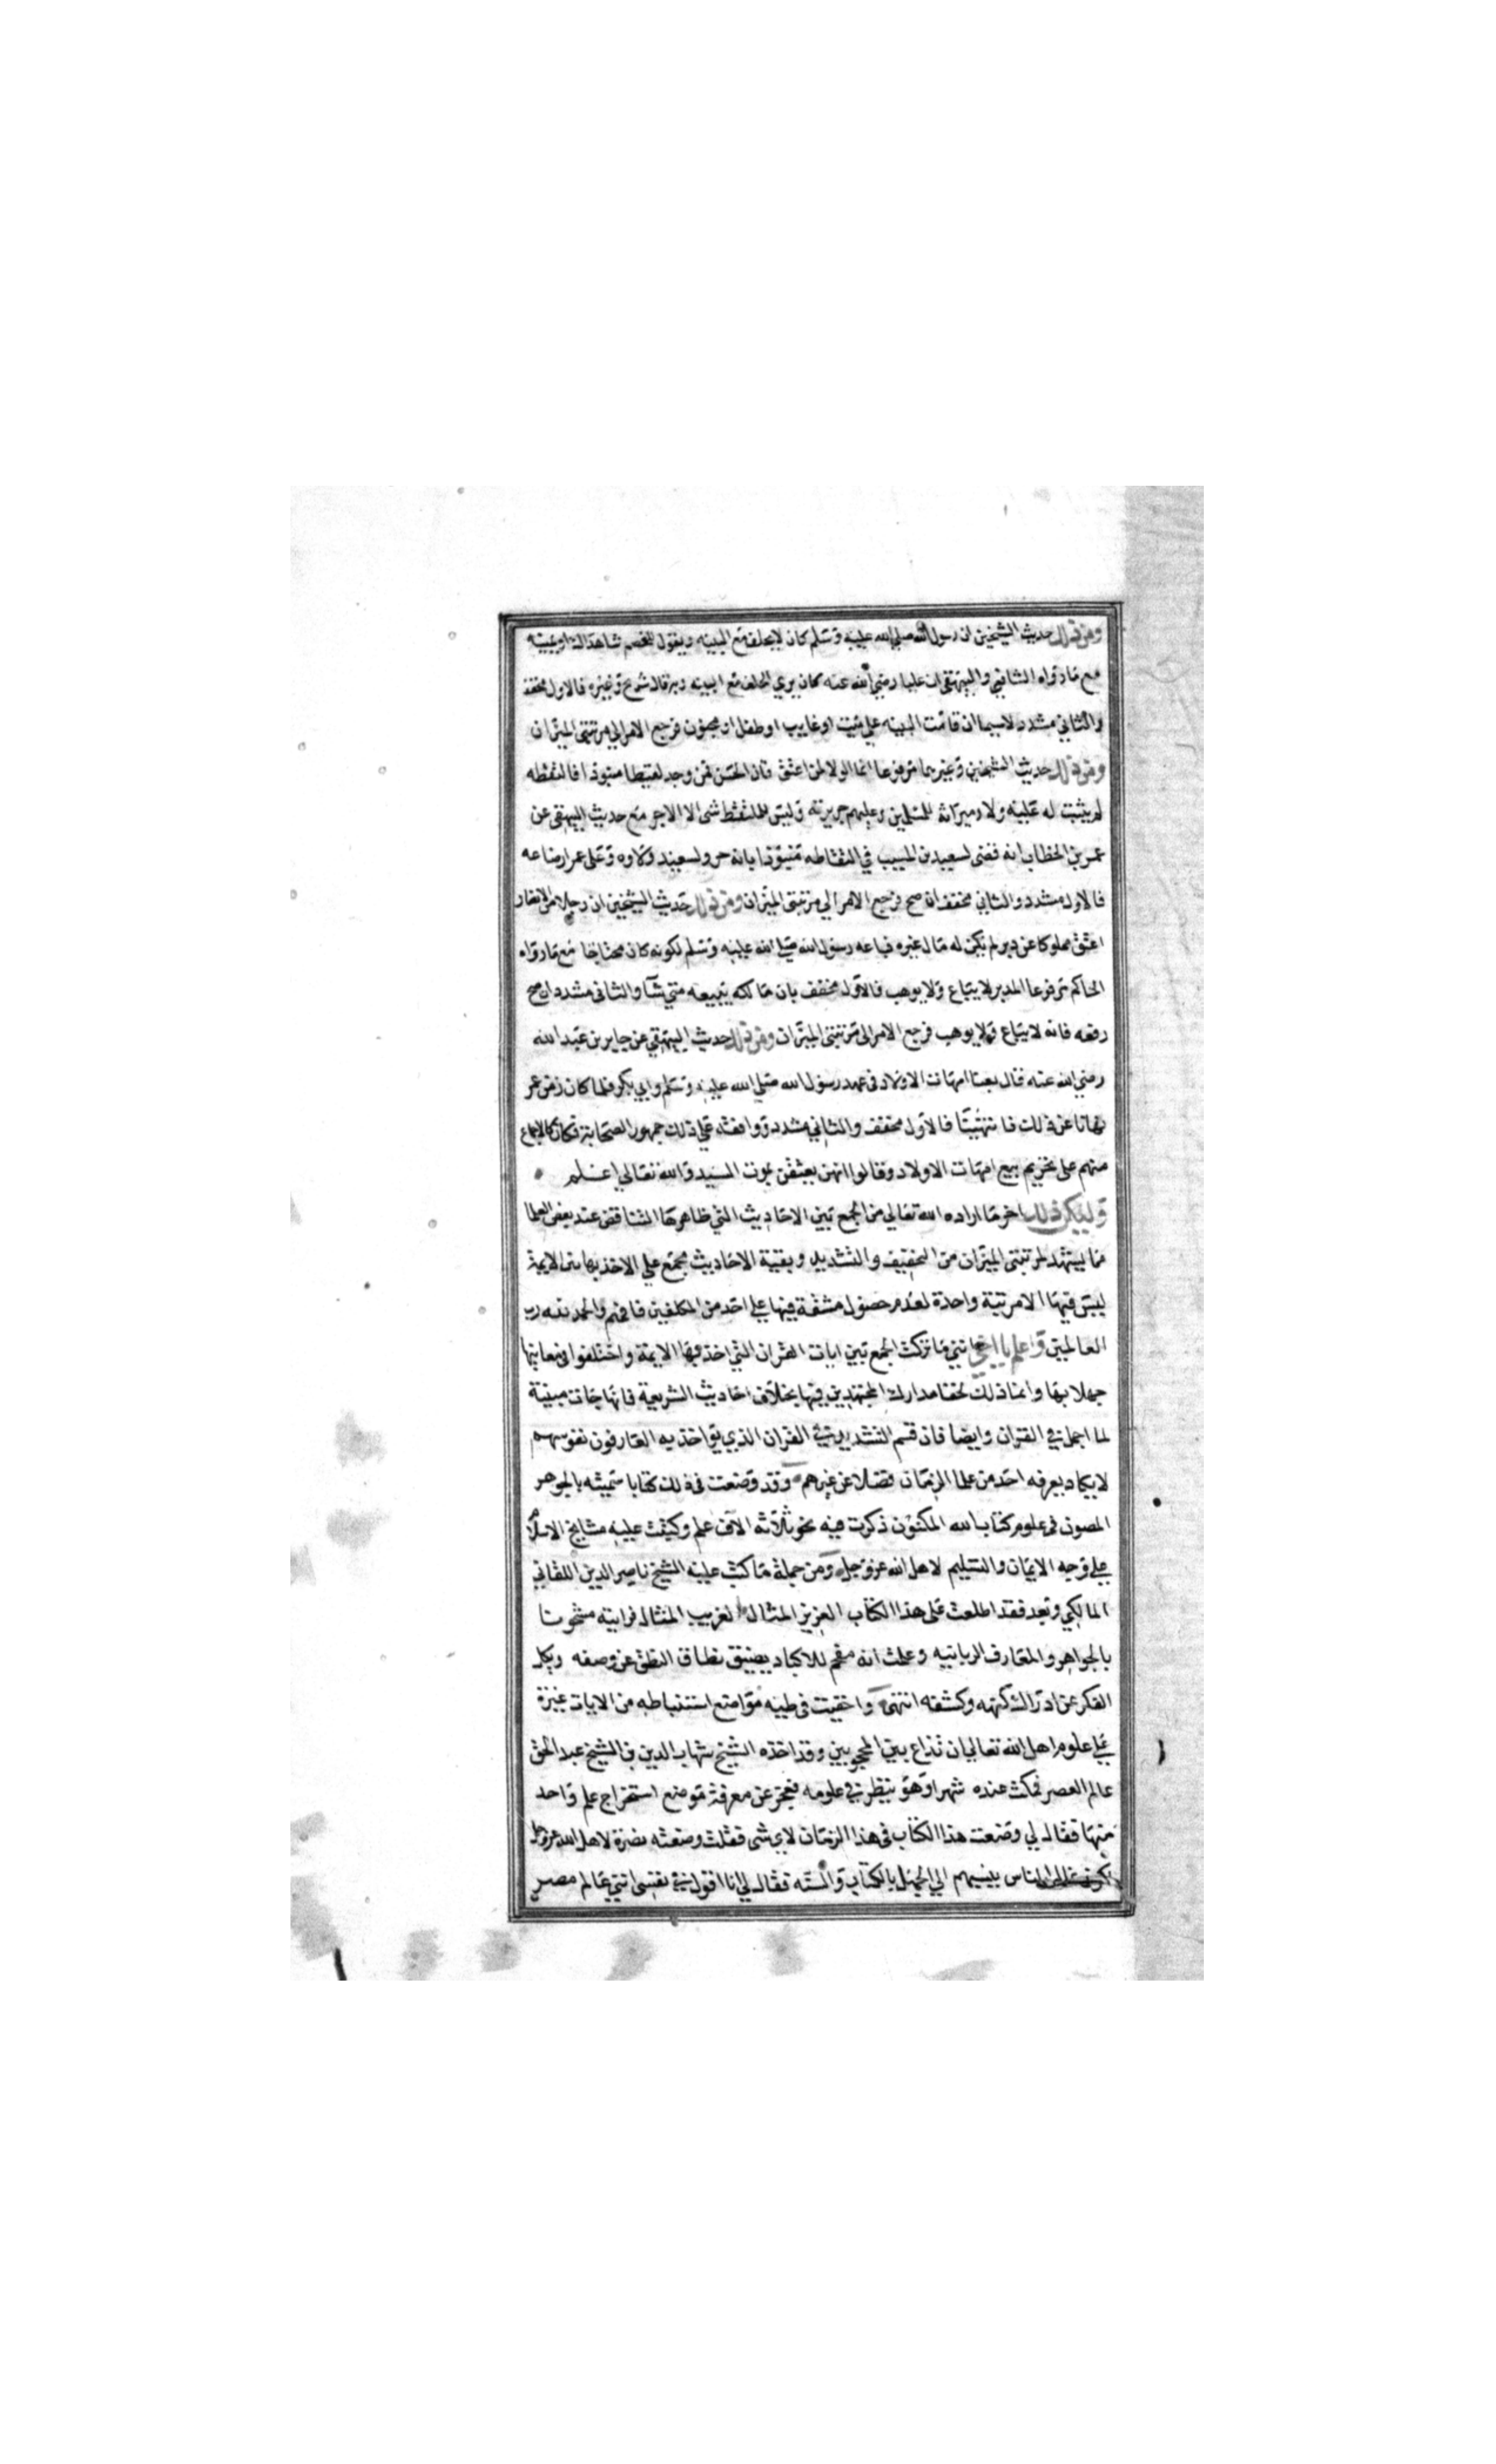 ومن ذلك حديث الشيخين ان رسول الله صلى الله عليه وسلم كان لا يحلف مع البينه ويقول للخصم شاهداك او يمينه
مع ما رواه الشافعي والبيهقي ان عليا رضي الله عنه كان يري الحلف مع البينه وبه قال شريح وغيره فالاول مخفف
والثاني مشدد لاسيما ان قامت البينه علي ميت او غايب او طفل او مجنون فرجع الامر الي مرتبتي الميزان
ومن ذلك حديث الشيخين وغيرهما مرفوعا انما الولا لمن اعتق قال الحسن فمن وجد لقيطا منبوذا فالتقطه
لم يثبت له عليه ولا وميراثه للمسلمين وعليهم جريرته وليس للملتقط شى الا الاجر مع حديث البيهقي عن
عمر بن الخطاب انه قضى لسعيد بن المسيب في التقاطه منبوذا بانه حر ولسعيد ولاوه وعلى عمر رضاعه
فالاول مشدد والثاني مخفف ان صح فرجع الامر الي مرتبتى الميزان ومن ذلك حديث الشيخين ان رجلا من الانصار
اعتق مملوكا عن دبر لم يكن له مال غيره فباعه رسول الله صلي الله عليه وسلم لكونه كان محتاجا مع ما رواه
الحاكم مرفوعا المدبر لا يباع ولا يوهب فالاول مخفف بان مالكه يبيعه متي شآ والثاني مشدد ان صح
رفعه فانه لا يباع ولا يوهب فرجع الامر الى مرتبتى الميزان ومن ذلك حديث البيهقي عن جابر بن عبد الله
رضي الله عنه قال بعنا امهات الاولاد فى عهد رسول الله صلي الله عليه وسلم وابي بكر فلما كان زمن عمر
نهانا عن ذلك فانتهينا فالاول مخفف والثاني مشدد ووافقه علي ذلك جمهور الصحابة فكان كالاجماع
منهم على تحريم بيع امهات الاولاد وقالوا انهن يعتقن بموت السيد والله تعالي اعلم
وليكن ذلك اخر ما اراده الله تعالي من الجمع بين الاحاديث التي ظاهرها التناقض عند بعض العلما
مما يشهد لمرتبتى الميزان من التخفيف والتشديد وبقية الاحاديث مجمع علي الاخذ بها بين الايمة
ليس فيها الا مرتبة واحدة لعدم حصول مشقة فيها علي احد من المكلفين فافهم والحمد لله رب
العالمين واعلم يا اخي انني ما تركت الجمع بين ايات القران التي اخذ بها الايمة واختلفوا فى معانيها
جهلا بها وانما ذلك لخفا مدارك المجتهدين فيها بخلاف احاديث الشريعة فانها جات مبينة
لما اجمل في القران وايضا فان قسم التشديد في القران الذي يواخذ به العارفون نفوسهم
لا يكاد يعرفه احد من علما الزمان فضلا عن غيرهم وقد وضعت فى ذلك كتابا سميته بالجوهر
المصون فى علوم كتاب الله المكنون ذكرت فيه نحو ثلاثة الاف علم وكتبت عليه مشايخ الاسلام
علي وجه الايمان والتسليم لاهل الله عز وجل ومن جملة ما كتب عليه الشيخ ناصر الدين اللقاني
المالكي وبعد فقد اطلعت على هذا الكتاب العزيز المثال الغريب المنال فرايته مشحونا
بالجواهر والمعارف الربانيه وعلمت انه مفحم للاكباد يضيق نطاق النطق عن وصفه ويكل
الفكر عن ادراك كنهه وكشفه انتهى واخفيت فى طيه مواضع استنباطه من الايات غيرة
علي علوم اهل الله تعالي ان تذاع بين المحجوبين وقد اخذه الشيخ شهاب الدين بن الشيخ عبد الحق
عالم العصر فمكث عنده شهرا وهو ينظر في علومه فعجز عن معرفة موضع استخراج علم واحد
منها فقال لي وضعت هذا الكتاب فى هذا الزمان لاي شى فقلت وضعته نصرة لاهل الله عز وجل
لكون غالب الناس ينسبهم الي الجهل بالكتاب والسنه فقال لي انا اقول في نفسي انني عالم مصر